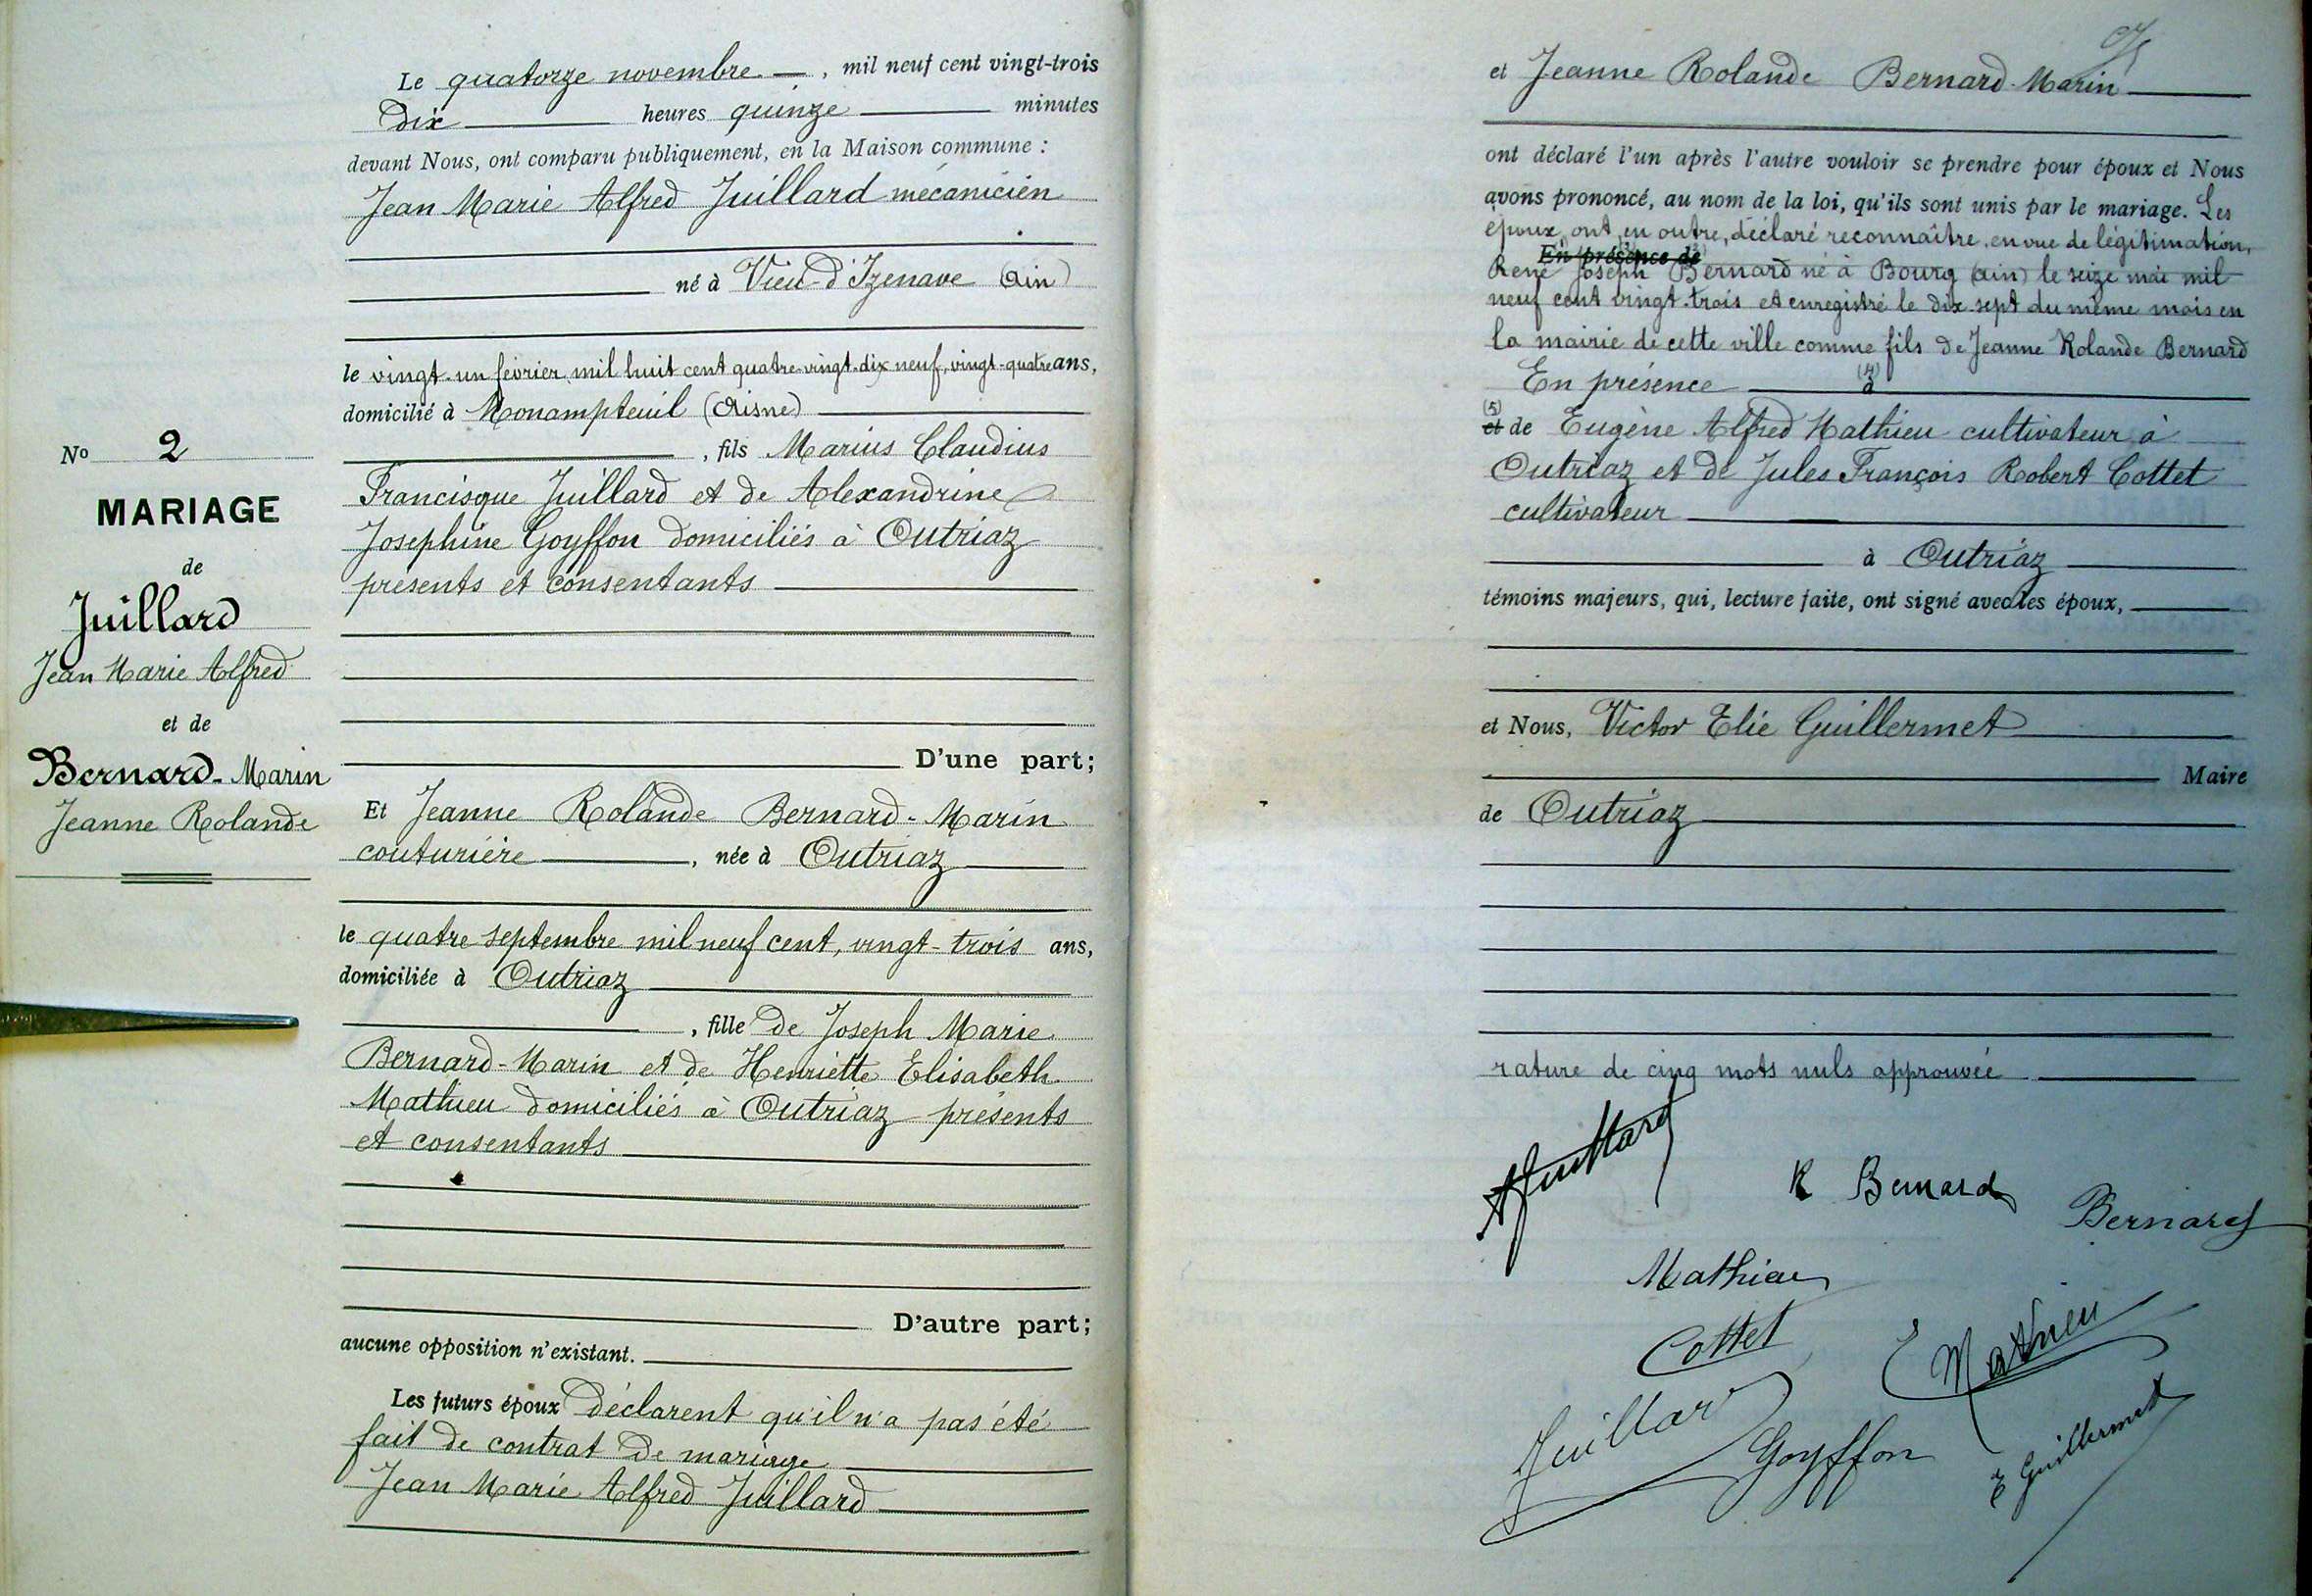 Le quatorze novembre — , mil neuf cent vingt-trois
Dix heures quinze minutes
devant Nous, ont comparu publiquement, en la Maison commune :
Jean Marie Alfred Juillard mécanicien
né à Vieu-d'Izenave (Ain)
le vingt-un février mil huit cent quatre-vingt-dix neuf, vingt-quatre ans,
domicilié à Monampteuil (Aisne)
, fils Marius Claudius
Francisque Juillard et de Alexandrine
Josephine Goyffon domiciliés à Outriaz
présents et consentants
No 2
MARIAGE
de
Juillard
Jean Marie Alfred
et de
Bernard-Marin
Jeanne Rolande
D'une part;
Et Jeanne Rolande Bernard-Marin
couturière , née à Outriaz
le quatre septembre mil neuf cent, vingt-trois ans,
domiciliée à Outriaz
, fille de Joseph Marie
Bernard-Marin et de Henriette Elisabeth
Mathieu domiciliés à Outriaz présents
et consentants
D'autre part;
aucune opposition n'existant.
Les futurs époux déclarent qu'il n'a pas été
fait de contrat de mariage
Jean Marie Alfred Juillard
et Jeanne Rolande Bernard-Marin
ont déclaré l'un après l'autre vouloir se prendre pour époux et Nous
avons prononcé, au nom de la loi, qu'ils sont unis par le mariage. Les
époux ont, en outre, déclaré reconnaître, en vue de légitimation,
En présence de
René Joseph Bernard né à Bourg (Ain) le seize mai mil
neuf cent vingt-trois et enregistré le dix-sept du même mois en
la mairie de cette ville comme fils de Jeanne Rolande Bernard
En présence (4) à
(5) et de Eugène Alfred Mathieu cultivateur à
Outriaz et de Jules François Robert Cottet
cultivateur
à Outriaz
témoins majeurs, qui, lecture faite, ont signé avec les époux,
et Nous, Victor Elie Guillermet
Maire
de Outriaz
rature de cinq mots nuls approuvée
A Juillard
R Bernard
Bernard
Mathieu
Cottet
E Mathieu
Juillard
Goyffon
E Guillermet